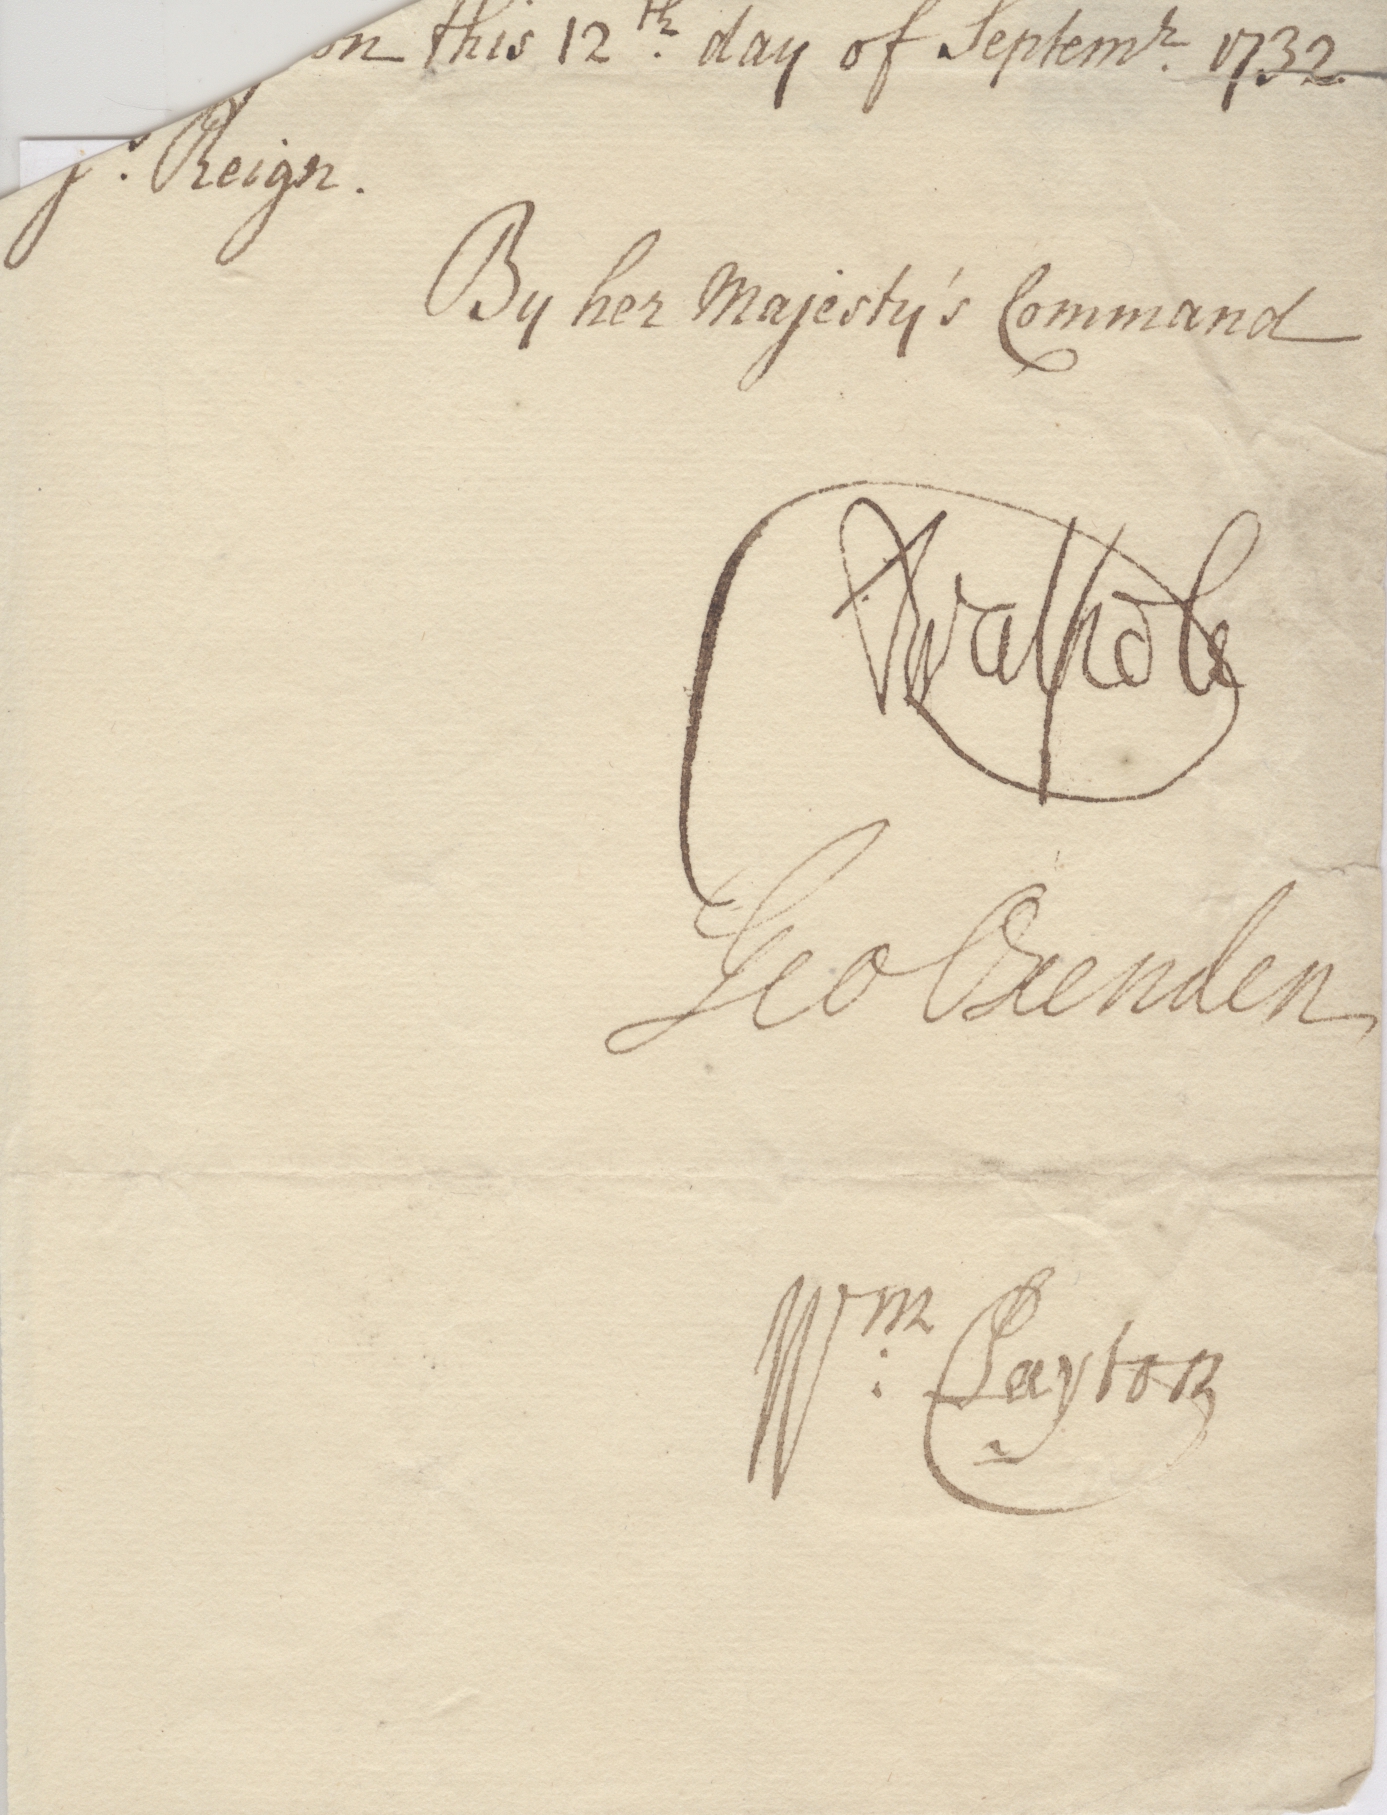 on this 12th. day of Septemr. 1732
Reign.
By her Majesty's Command
RWalpole
Geo Oxenden
Wm: Clayton